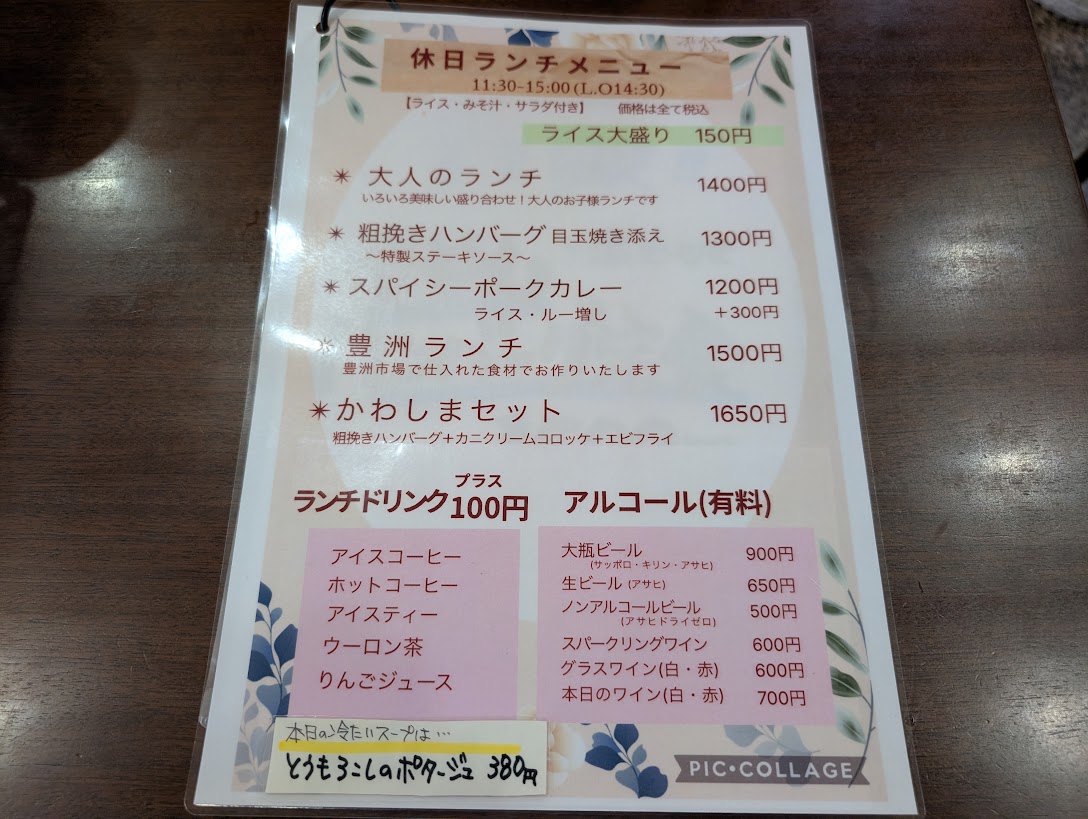 休日ランチメニュー
11:30-15:00(L.O14:30)
【ライス・みそ汁・サラダ付き】 価格は全て税込
ライス大盛り 150円
✴大人のランチ 1400円
いろいろ美味しい盛り合わせ！大人のお子様ランチです
✴粗挽きハンバーグ 目玉焼き添え 1300円
～特製ステーキソース～
✴スパイシーポークカレー 1200円
ライス・ルー増し ＋300円
✴豊洲ランチ 1500円
豊洲市場で仕入れた食材でお作りいたします
✴かわしまセット 1650円
粗挽きハンバーグ＋カニクリームコロッケ＋エビフライ
プラス
ランチドリンク100円
アイスコーヒー
ホットコーヒー
アイスティー
ウーロン茶
りんごジュース
アルコール(有料)
大瓶ビール 900円
(サッポロ・キリン・アサヒ)
生ビール (アサヒ) 650円
ノンアルコールビール 500円
(アサヒドライゼロ)
スパークリングワイン 600円
グラスワイン(白・赤) 600円
本日のワイン(白・赤) 700円
本日の冷たいスープは…
とうもろこしのポタージュ 380円
PIC•COLLAGE